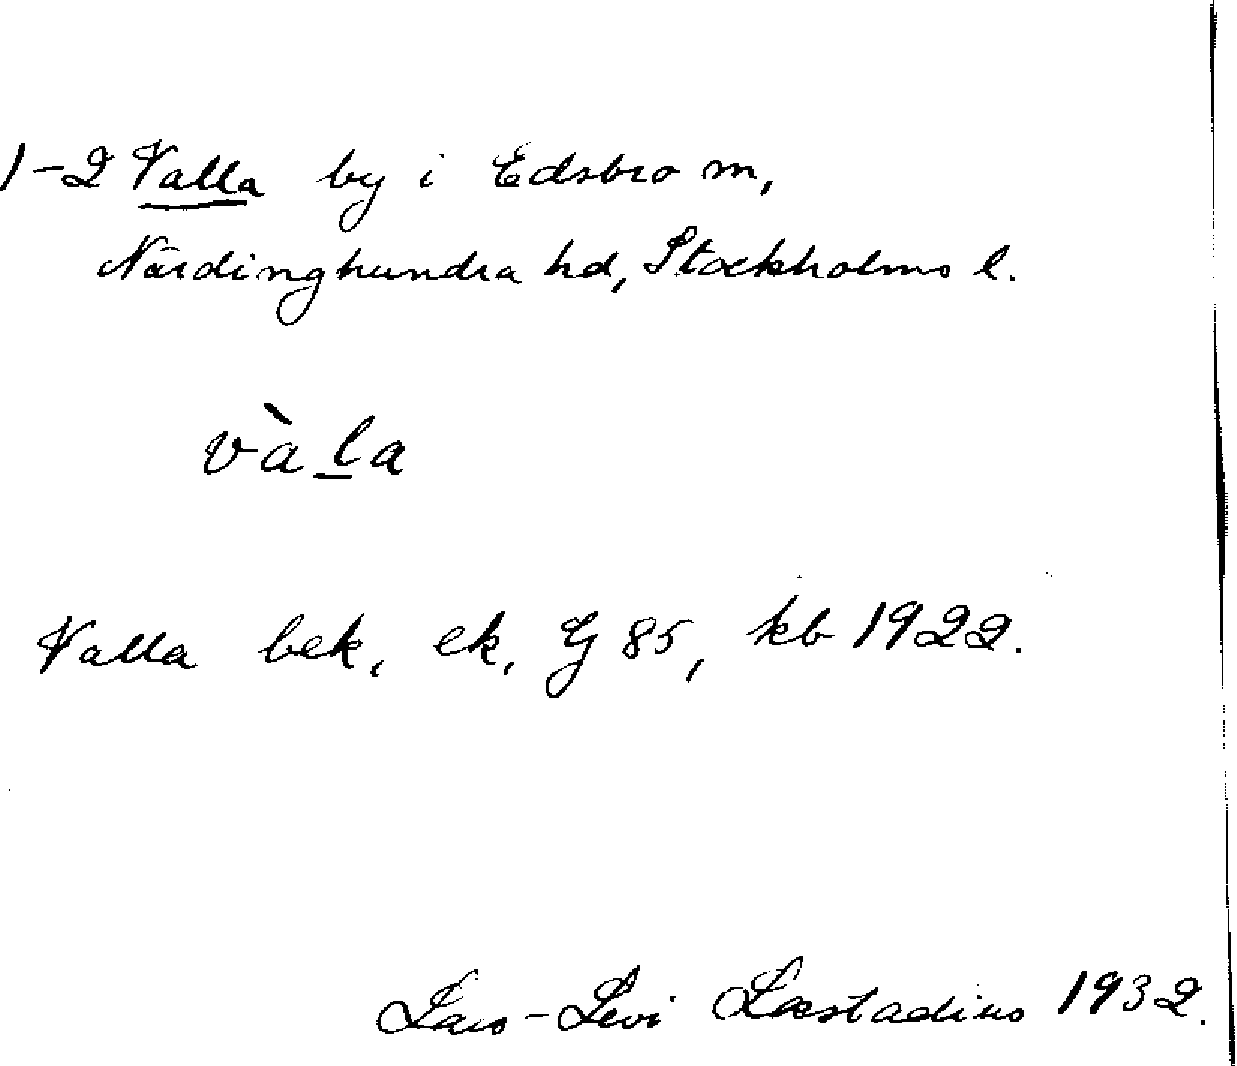 1-2 Valla by i Edsbro sn,
Närdinghundra hd, Stockholms l.
vàla
Valla bek. ek. G 85, kb 1922.
Lars-Levi Læstadius 1932.